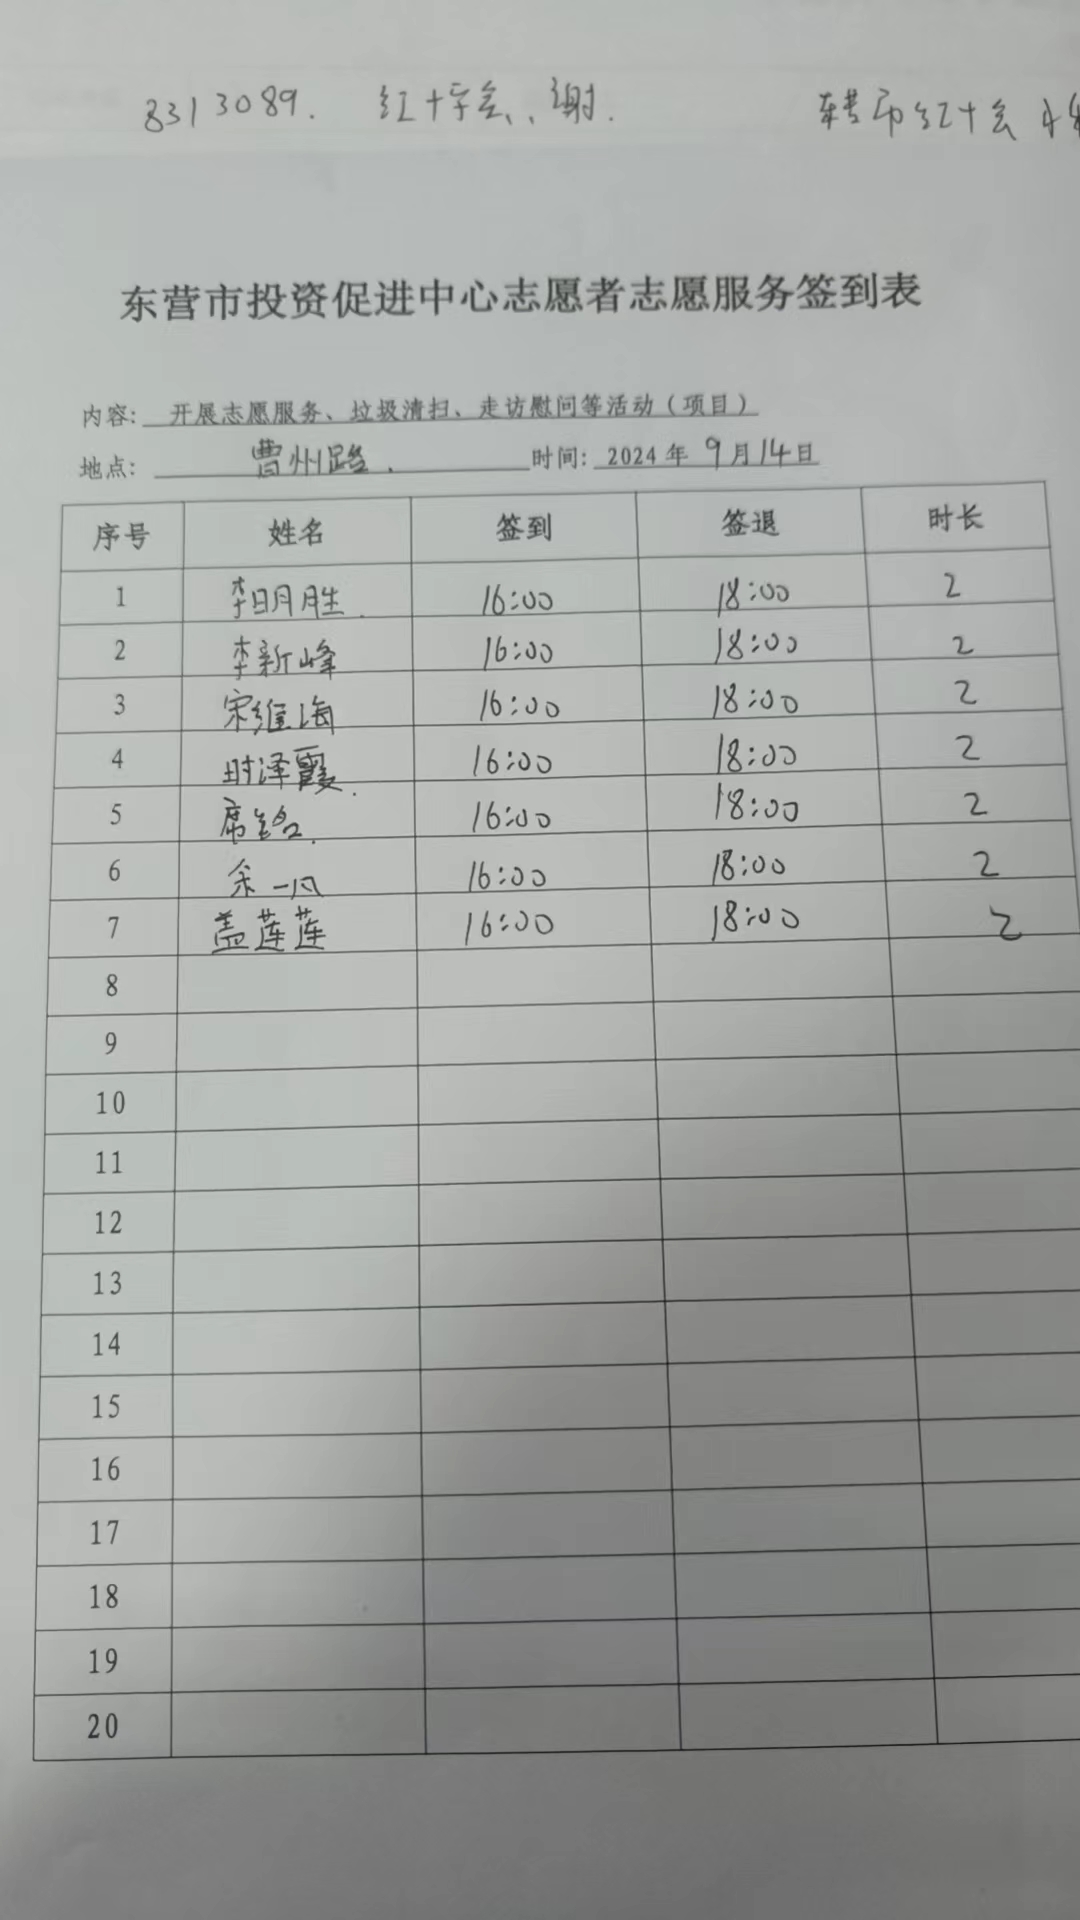 8313089. 红十字会、、谢.
市红十会
东营市投资促进中心志愿者志愿服务签到表
内容: 开展志愿服务、垃圾清扫、走访慰问等活动（项目）
地点: 曹州路. 时间: 2024年 9月14日
序号 姓名 签到 签退 时长
1 李明胜. 16:00 18:00 2
2 李新峰 16:00 18:00 2
3 宋维海 16:00 18:00 2
4 时泽霞. 16:00 18:00 2
5 席铭. 16:00 18:00 2
6 余一凡 16:00 18:00 2
7 盖莲莲 16:00 18:00 2
8
9
10
11
12
13
14
15
16
17
18
19
20